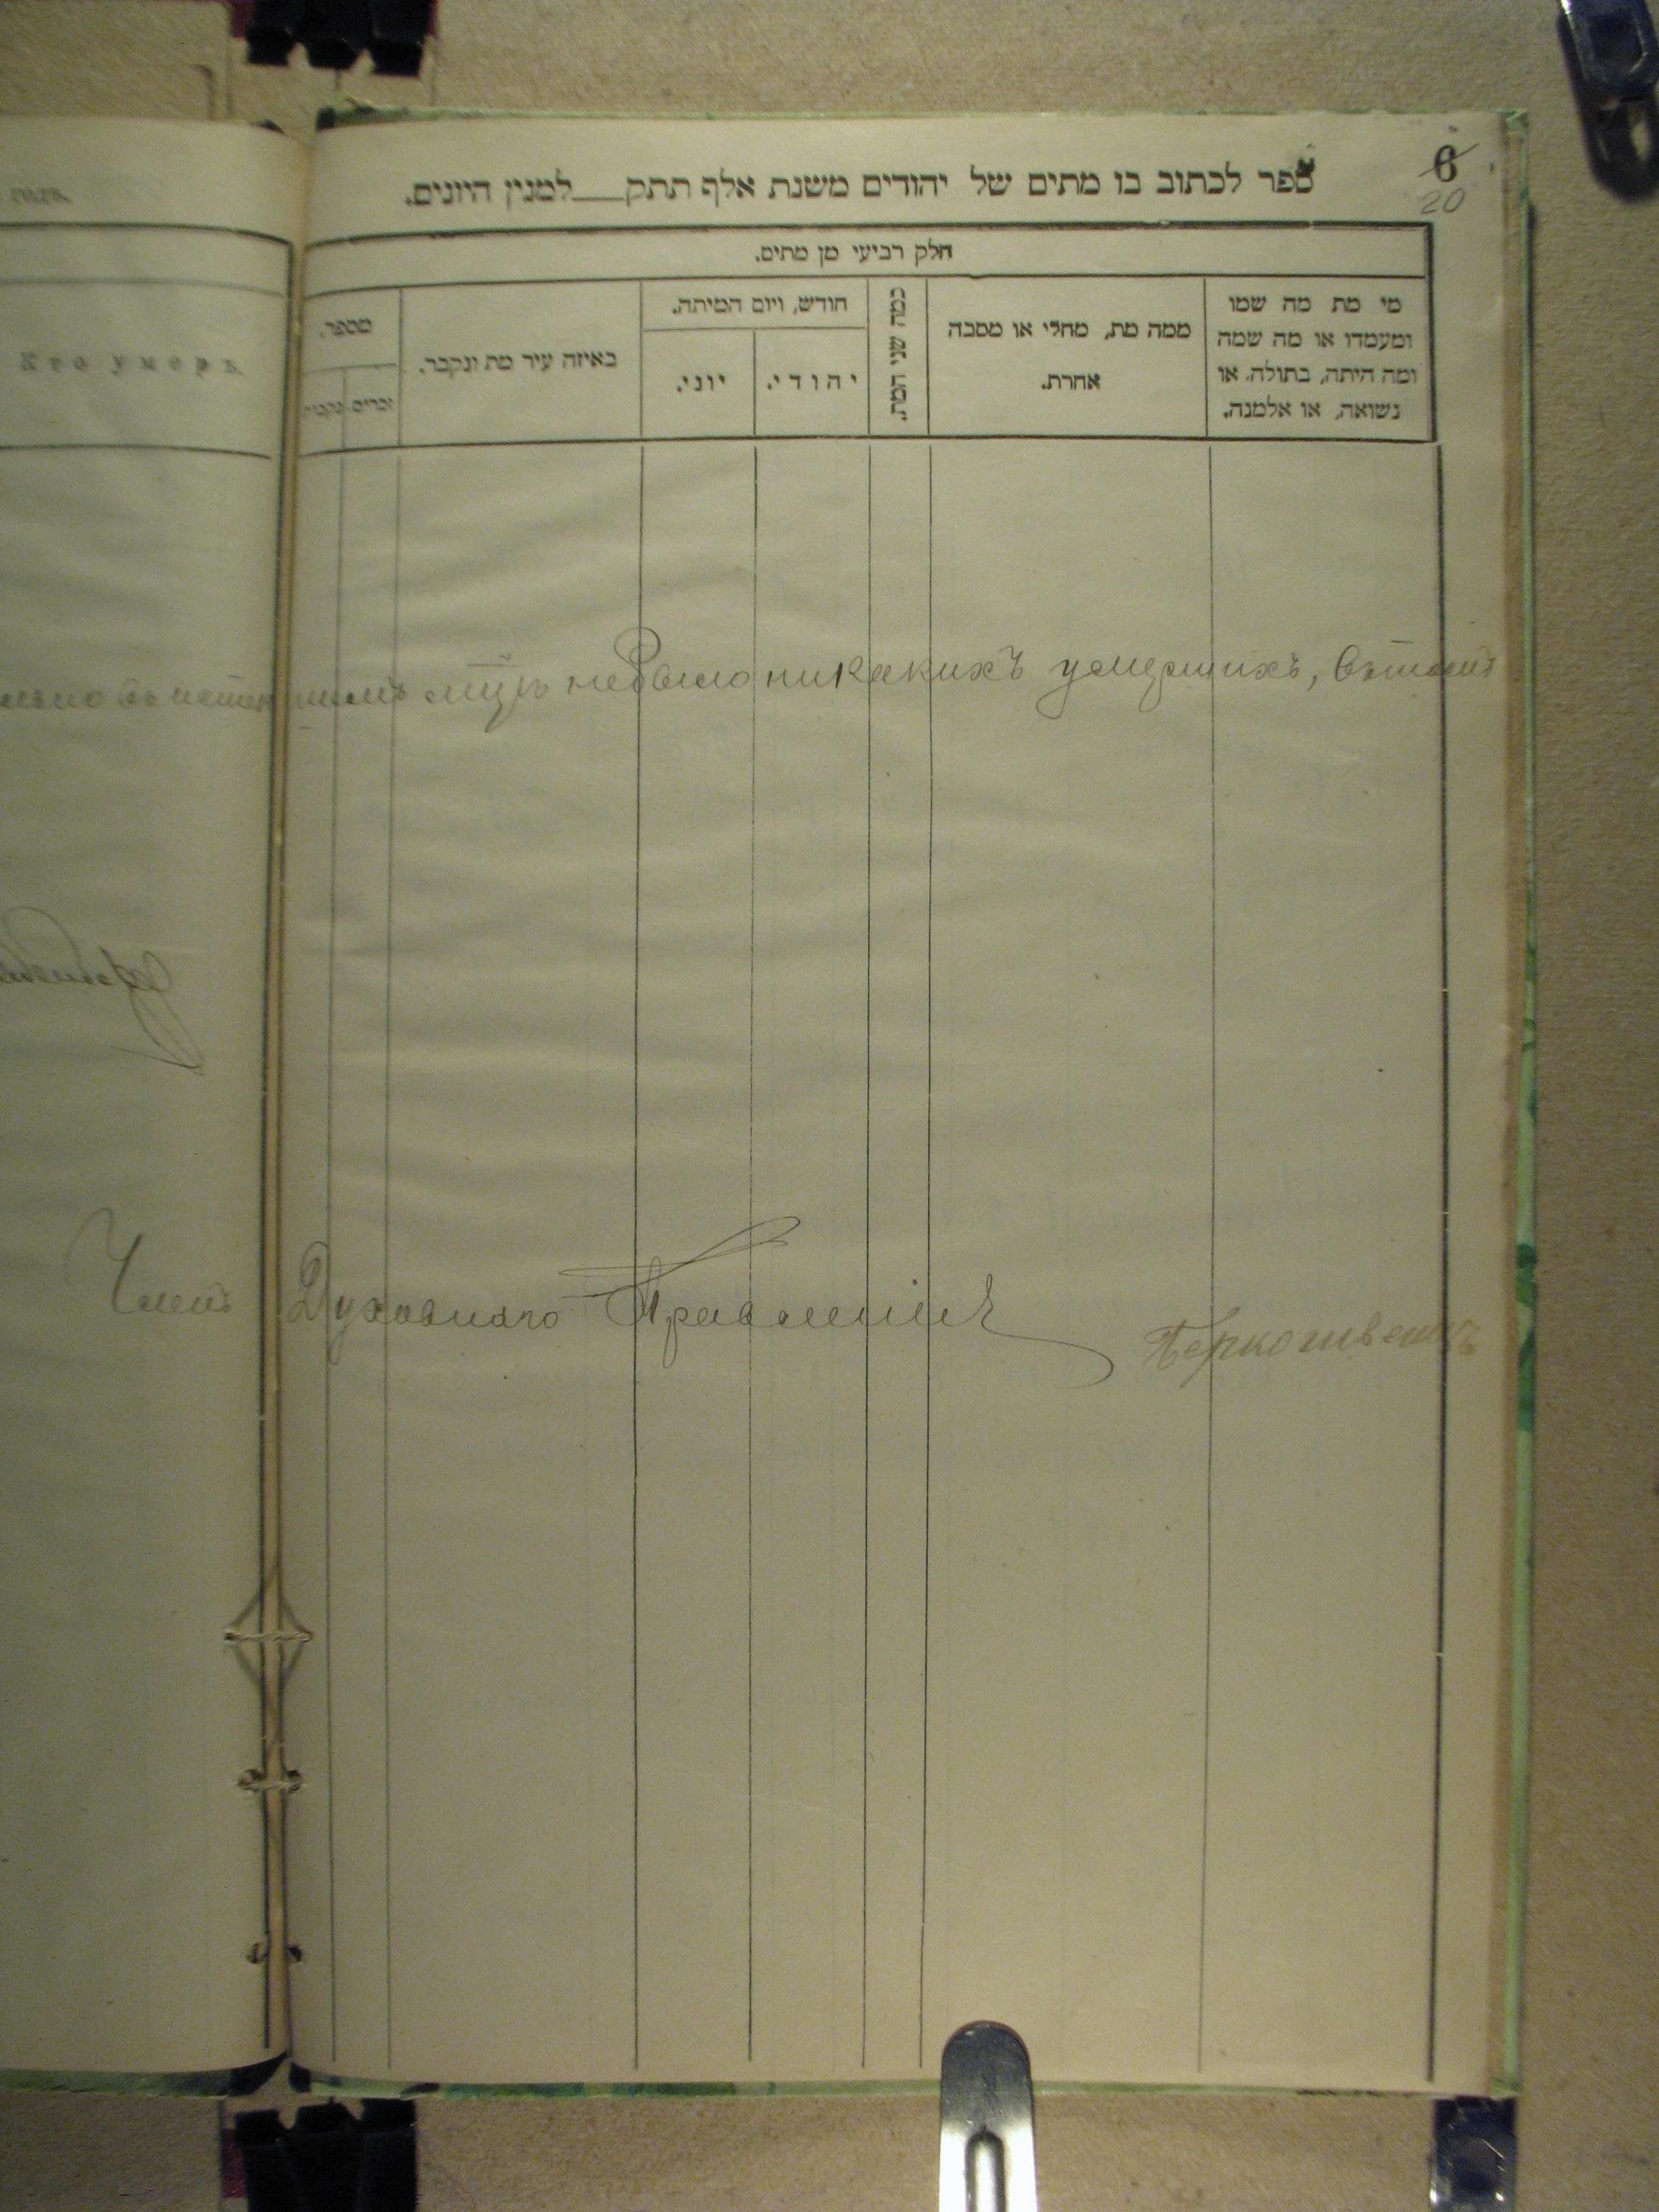 6
20
ספר לכתוב בו מתים של יהודים משנת אלף תתק___למנין היונים.
חלק רביעי מן מתים.
מי מת מה שמו
ומעמדו או מה שמה
ומה היתה, בתולה, או
נשואה, או אלמנה.
ממה מת, מחלי או מסבה
אחרת.
כמה שני המת.
חודש, ויום המיתה.
יהודי.
יוני.
באיזה עיר מת ונקבר.
מספר.
זכרים.
נקבות
года.
Кто умеръ
небыло никакихъ умершихъ, въ томъ
Членъ Духовнаго Правленія